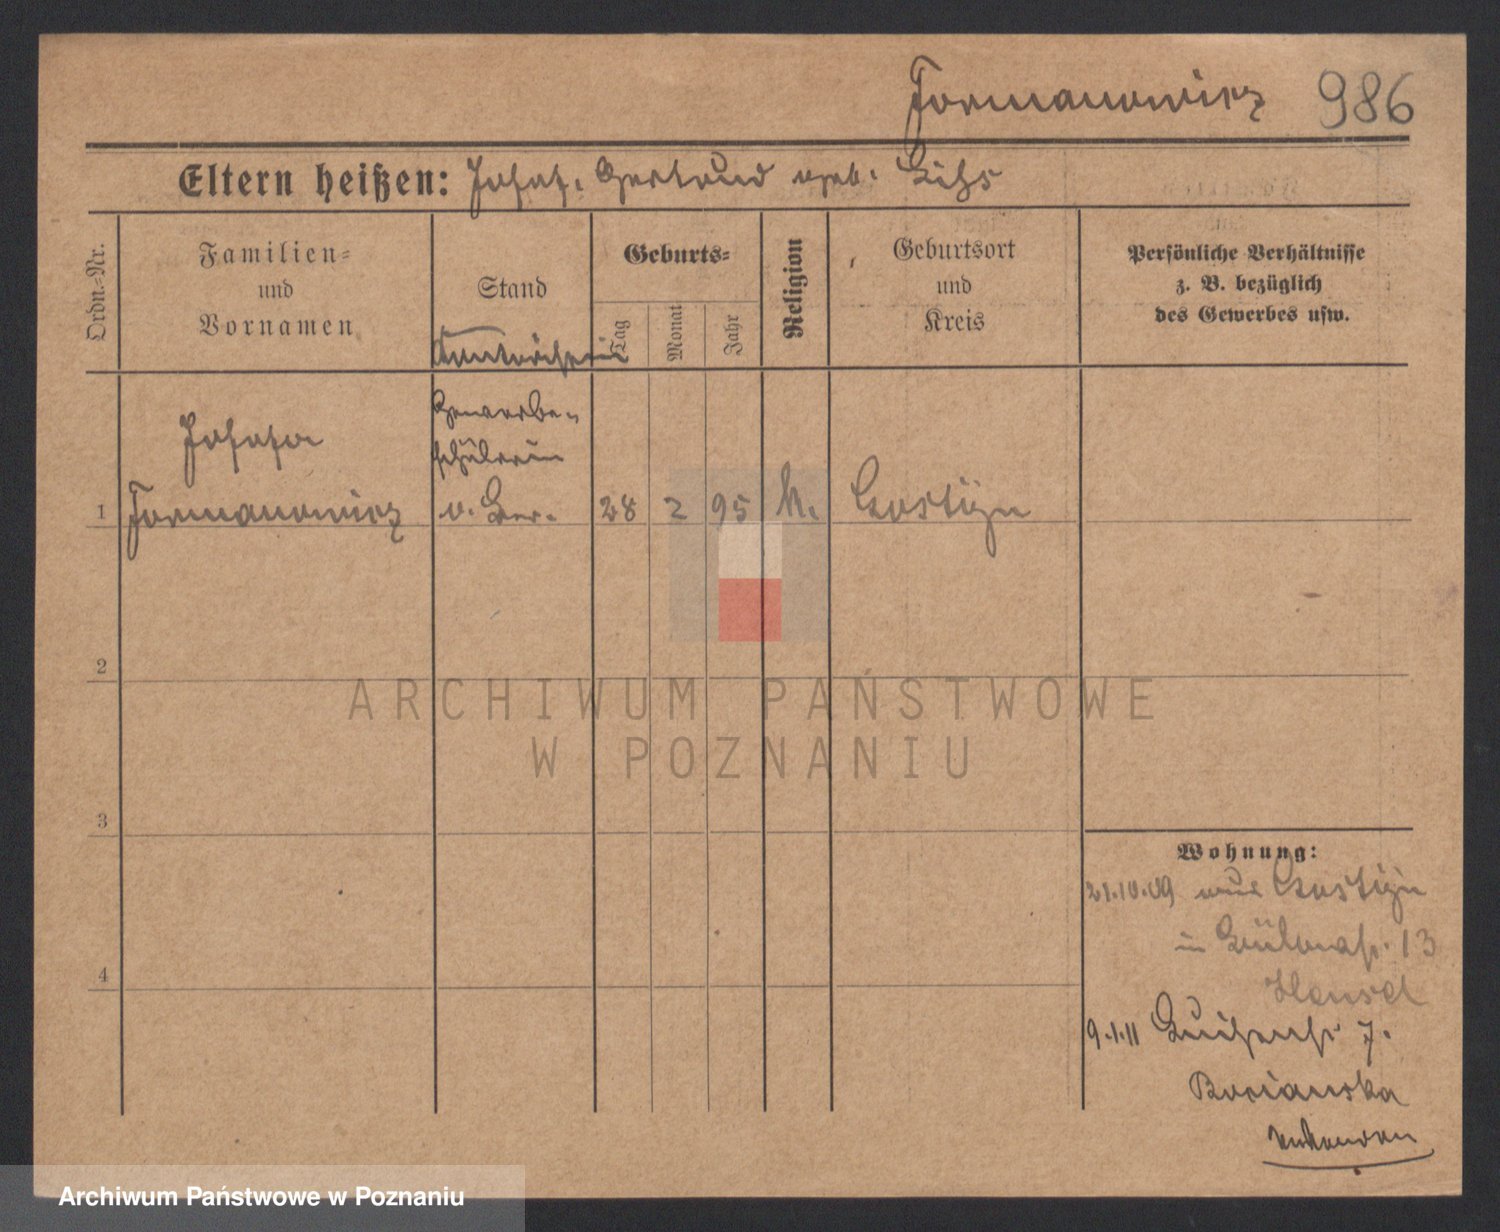 Formanowicz 986
Eltern heißen: Josef. Gertrud geb.
Ordn.-Nr.
Familien- und Vornamen
Stand
Geburts-
Tag
Monat
Jahr
Religion
Geburtsort und Kreis
Persönliche Verhältnisse z. B. bezüglich des Gewerbes usw.
Gewerbe-
schülerin
Josefa
1 Formanowicz v. Ger. 28 2 95 k. Gostyn
2
3
4
Wohnung:
21.10.09 aus Gostyn
in 13
9.1.11 Luisenstr 7.
Bocianska
ARCHIWUM PAŃSTWOWE
W POZNANIU
Archiwum Państwowe w Poznaniu